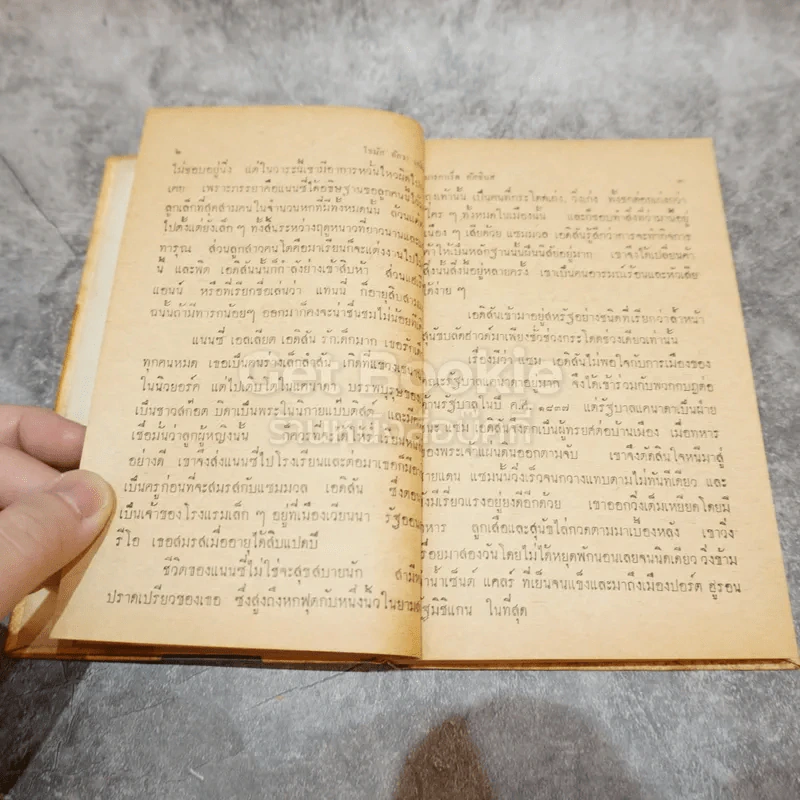 ๒ โทมัส อัลวา
ไม่ชอบอยู่นิ่ง แต่ในวาระนี้เขามีอาการหวั่นไหวผิดไป
เคย เพราะภรรยาคือแนนซี่ได้อธิษฐานขอลูกคนนี้
ลูกเล็กที่สุดสามคนในจำนวนหกที่มีทั้งหมดนั้น
ไปตั้งแต่ยังเล็ก ๆ ทั้งสิ้นระหว่างฤดูหนาวที่ยาวนานและ
ทารุณ ส่วนลูกสาวคนโตคือมาเรียนก็จะแต่งงานไป
นี้ และพิต เอดิสันนั้นก็กำลังย่างเข้าสิบหา ส่วน
แอนน์ หรือที่เรียกชื่อเล่นว่า แทนนี่ ก็อายุสิบสาม
ฉนั้นถ้ามีทารกน้อยๆ ออกมาก็คงจะน่าชื่นชมไม่น้อย
แนนซี่ เอลเลียต เอดิสัน รักเด็กมาก เธอรัก
ทุกคนหมด เธอเป็นคนร่างเล็กล่ำสัน เกิดที่
ในนิวยอร์ค แต่ไปเติบโตในแคนาดา บรรพบุรุษของ
เป็นชาวสก๊อต บิดาเป็นพระในนิกายแบ๊บติสต์ และมี
เชื่อมั่นว่าลูกผู้หญิงนั้น ก็ควรที่จะได้ให้เรียน
อย่างดี เขาจึงส่งแนนซี่ไปโรงเรียนและต่อมาเธอก็มี
เป็นครูก่อนที่จะสมรสกับแซมมวล เอดิสัน ซึ่ง
เป็นเจ้าของโรงแรมเล็ก ๆ อยู่ที่เมืองเวียนนา รัฐออน
รีโอ เธอสมรสเมื่ออายุได้สิบแปดปี
ชีวิตของแนนซี่ไม่ใช่จะสุขสบายนัก สามี
ปราดเปรียวของเธอ ซึ่งสูงถึงหกฟุตกับหนึ่งนิ้วในยาม
มาร์กาเร็ต คัสซินส์ ๓
ถุงเท้านั้น เป็นคนที่กระโดดเก่ง, วิ่งเก่ง ทั้งชกต่อยเก่งกว่า
ใคร ๆ ทั้งหมดในเมืองนั้น และก็ชอบทำสิ่งที่วู่วามอยู่
เนือง ๆ เสียด้วย แซมมวล เอดิสันรู้สึกว่าการจะทำกิจการ
ค้าให้เป็นหลักฐานนั้นฝืนนิสัยอยู่มาก เขาจึงได้เปลี่ยนค้า
สิ่งนั้นสิ่งนี้อยู่หลายครั้ง เขาเป็นคนอารมณ์ร้อนและหัวเสีย
ได้ง่าย ๆ
เอดิสันเข้ามาอยู่สหรัฐอย่างชนิดที่เรียกว่าล้ำหน้า
สุนัขบลัดฮาวด์มาเพียงชั่วช่วงกระโดดช่วงเดียวเท่านั้น
เรื่องมีว่าแซม เอดิสันไม่พอใจกับการเมืองของ
คณะรัฐบาลแคนาดาอย่างมาก จึงได้เข้าร่วมกับพวกกบฏต่อ
ต้านรัฐบาลในปี ค.ศ. ๑๘๓๗ แต่รัฐบาลแคนาดาเป็นฝ่าย
ชนะ แซม เอดิสันจึงตกเป็นผู้ทรยศต่อบ้านเมือง เมื่อทหาร
ของพระเจ้าแผ่นดินออกตามจับ เขาจึงตัดสินใจหนีมาสู่
ชายแดน แซมนั้นวิ่งเร็วจนกวางแทบตามไม่ทันทีเดียว และ
ยังมีเรี่ยวแรงอยู่ยงดีอีกด้วย เขาออกวิ่งเต็มเหยียดโดยมี
ทหาร ลูกเสือและสุนัขไล่กวดตามมาเบื้องหลัง เขาวิ่ง
เรื่อยมาสองวันโดยไม่ได้หยุดพักนอนเลยจนนิดเดียว วิ่งข้าม
แม่น้ำเซ็นต์ แคลร์ ที่เย็นจนแข็งและมาถึงเมืองปอร์ต ฮูรอน
รัฐมิชิแกน ในที่สุด
Get Bookie
ร้านหนังสือมือสอง